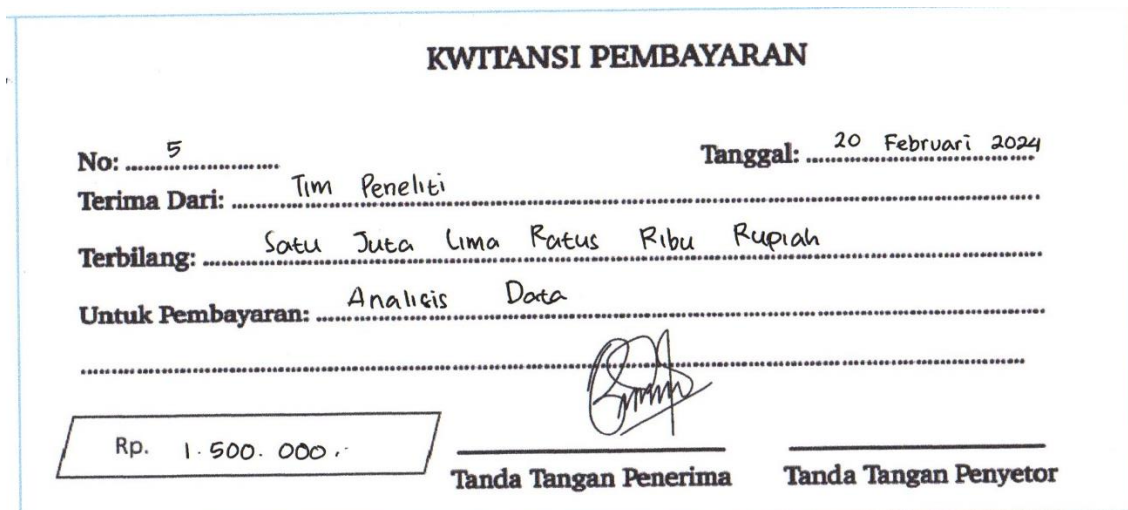 KWITANSI PEMBAYARAN
No: 5 Tanggal: 20 Februari 2024
Terima Dari: Tim Peneliti
Terbilang: Satu Juta Lima Ratus Ribu Rupiah
Untuk Pembayaran: Analisis Data
Rp. 1.500.000,-
Tanda Tangan Penerima Tanda Tangan Penyetor